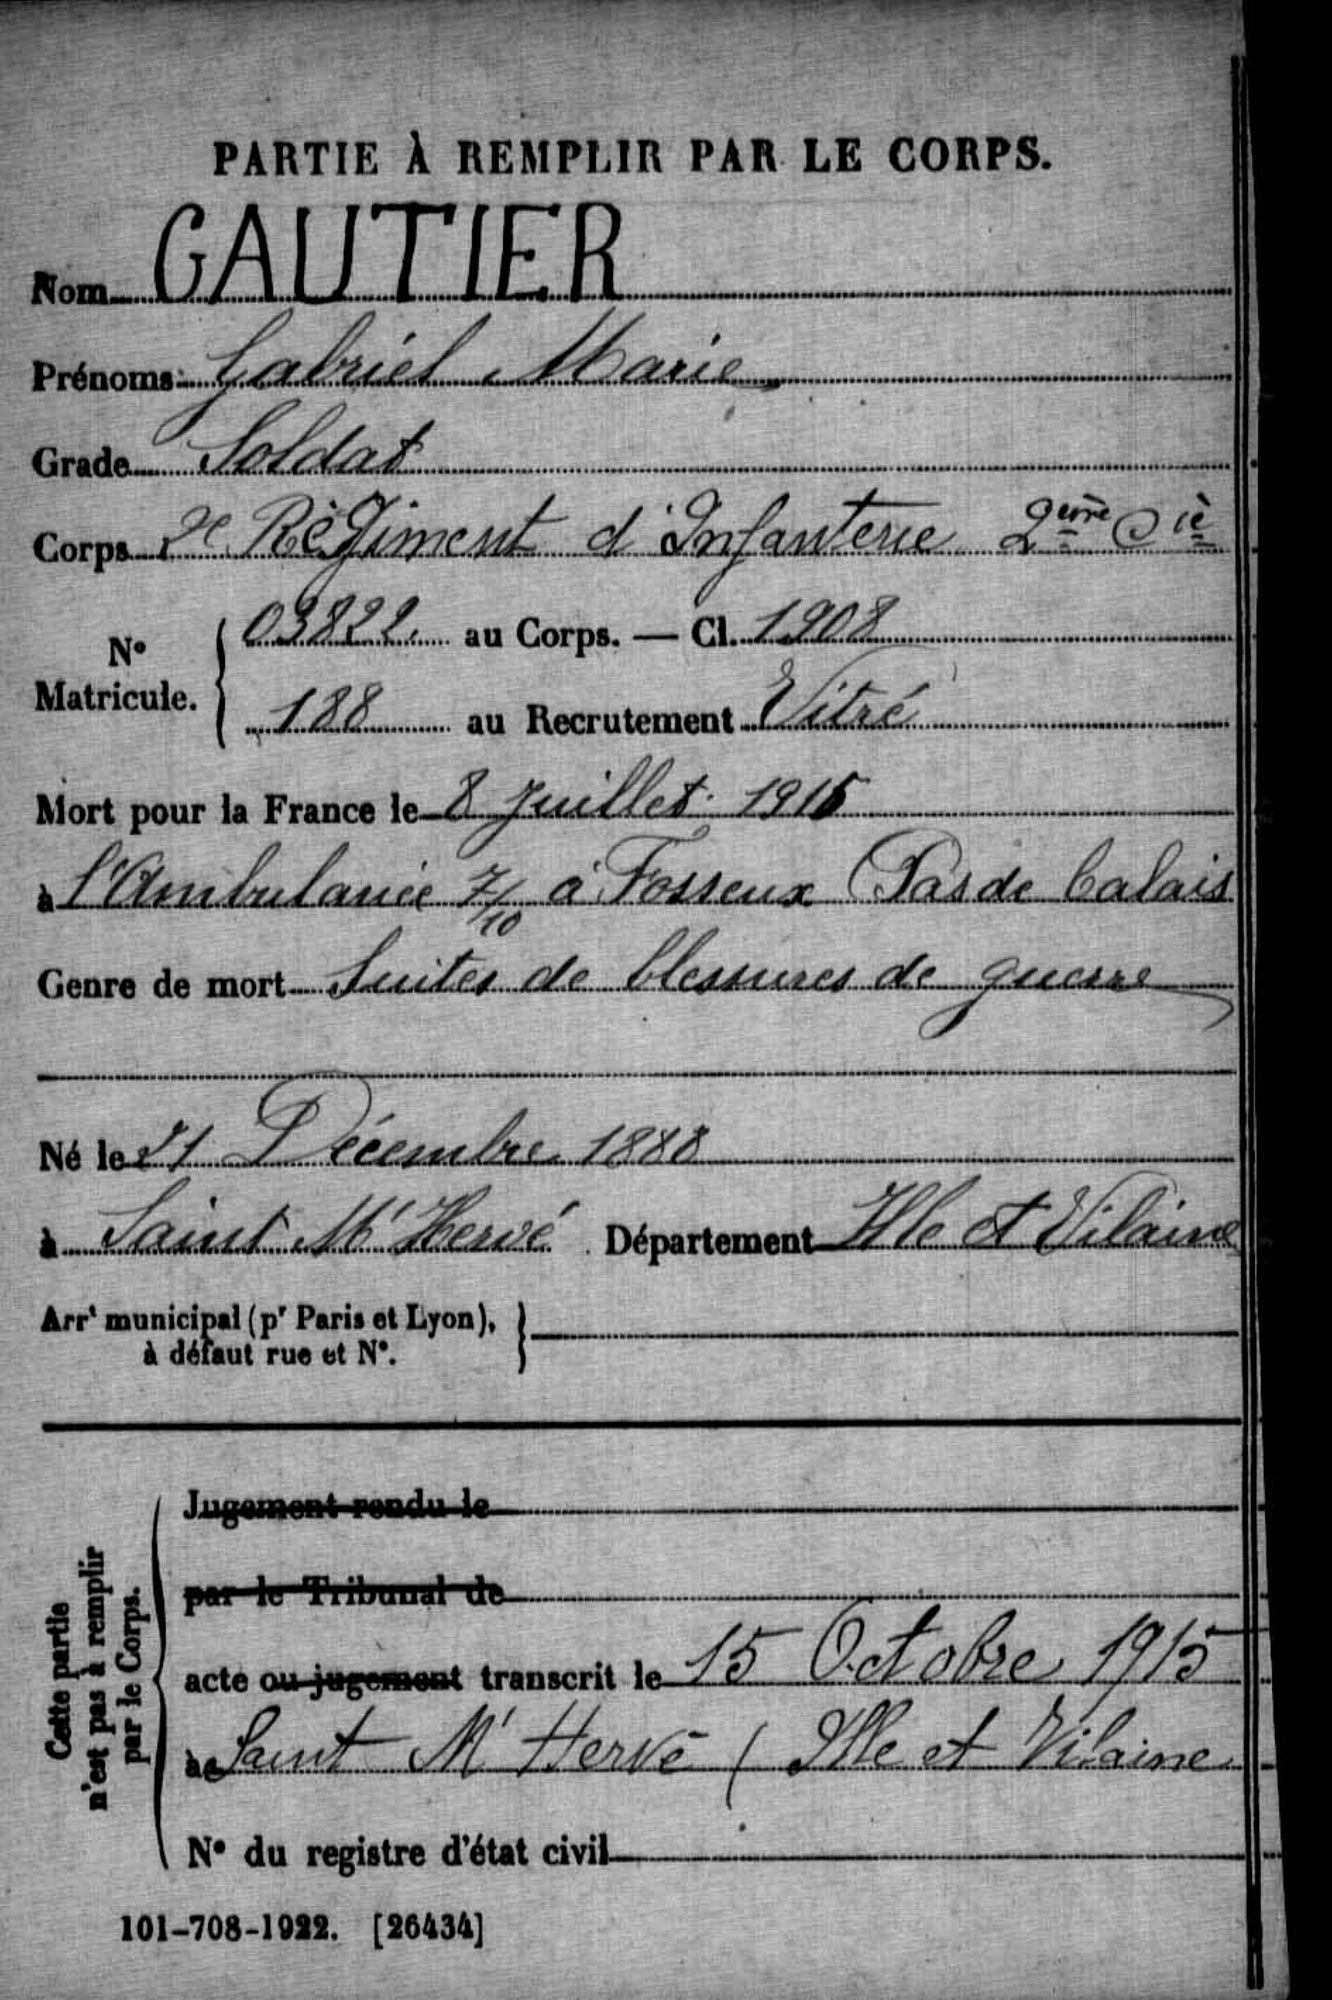 PARTIE À REMPLIR PAR LE CORPS.
Nom GAUTIER
Prénoms Gabriel Marie
Grade Soldat
Corps 2e Régiment d'Infanterie 2ème Cie
N° Matricule. { 03822 au Corps. — Cl. 1908
188 au Recrutement Vitré
Mort pour la France le 8 Juillet 1915
à l'Ambulance 7/10 à Fosseux (Pas de Calais
Genre de mort Suites de blessures de guerre
Né le 21 Décembre 1888
à Saint M' Hervé Département Ille et Vilaine
Arrt municipal (pr Paris et Lyon),
à défaut rue et N°.
Cette partie
n'est pas à remplir
par le Corps.
Jugement rendu le
par le Tribunal de
acte ou jugement transcrit le 15 Octobre 1915
à Saint M' Hervé (Ille et Vilaine
N° du registre d'état civil
101-708-1922. [26434]